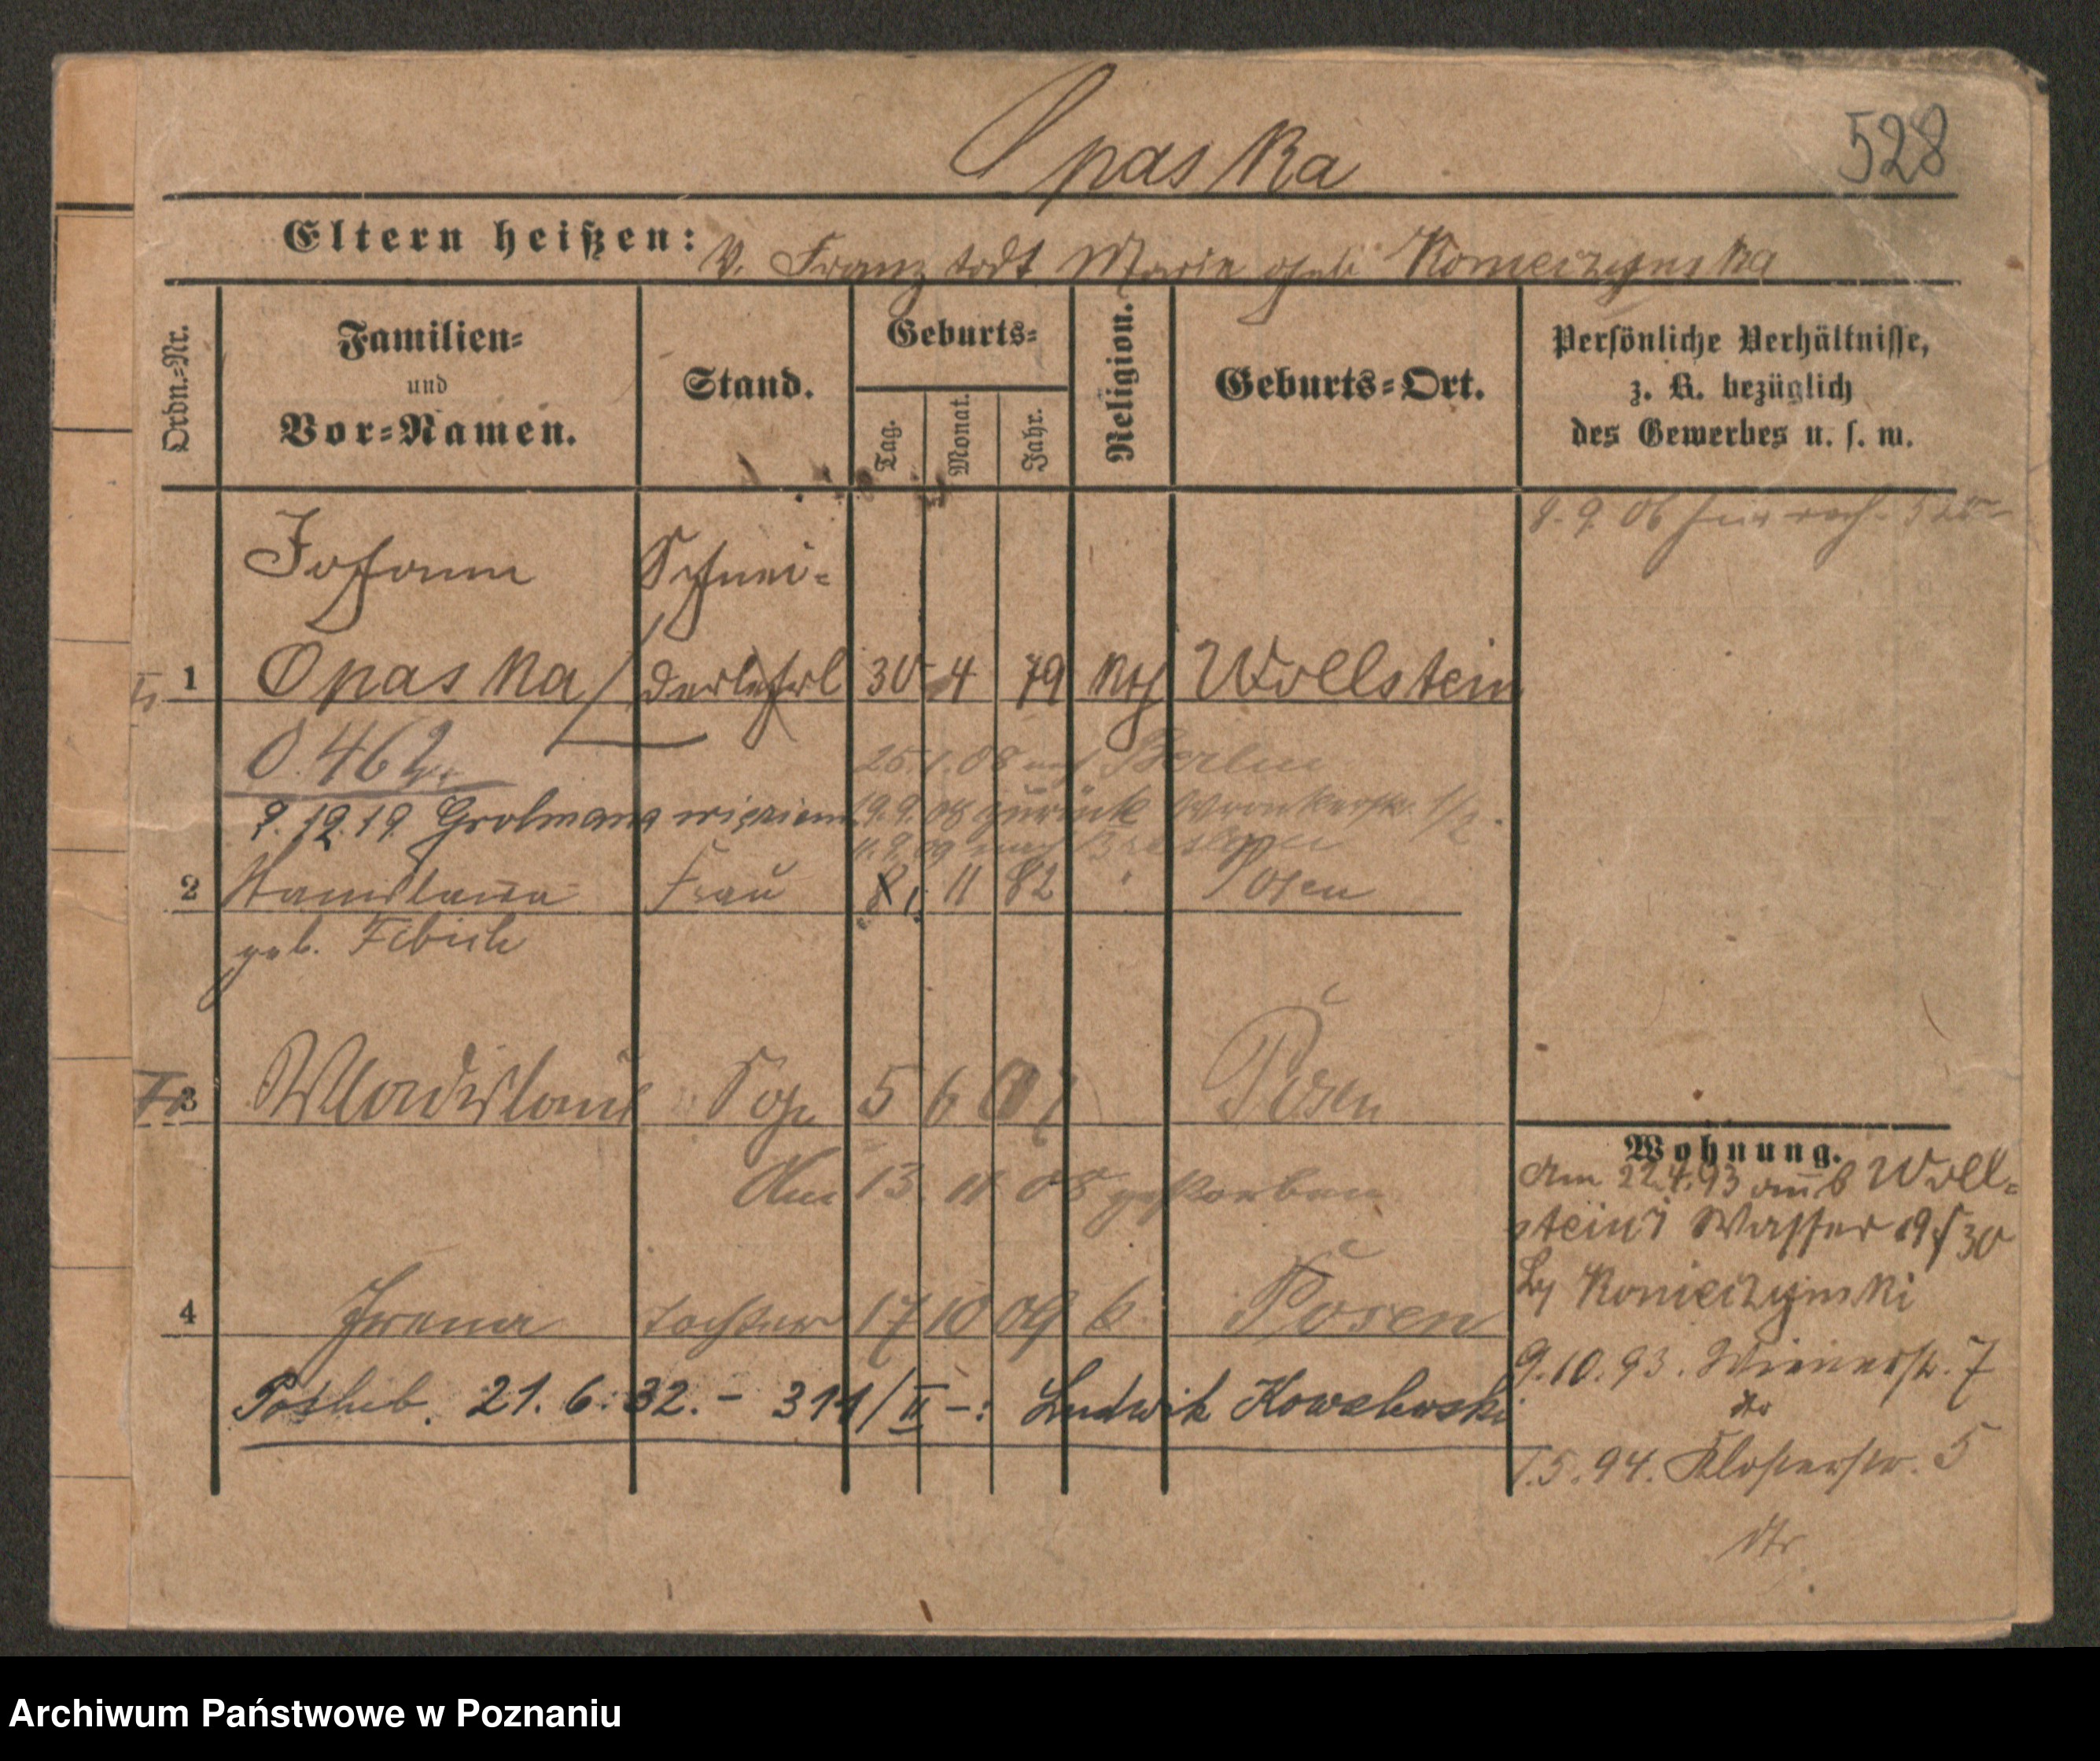 Opaska
528
Eltern heißen: V. Franz todt Marie geb. Konieczynska
Ordn.-Nr.
Familien- und Vor-Namen.
Stand.
Geburts-
Tag. Monat. Jahr.
Religion.
Geburts-Ort.
Persönliche Verhältnisse,
z. B. bezüglich
des Gewerbes u. s. w.
Johann Schnei-
1 Opaska derlehrl 30 4 79 kth Wollstein
O. 462
25. 1. 08 nach Berlin
9.12.19 Grolmana więzienie 19.9.08 zurück Wronkerstr. 1/2.
11.9.09 nach Breslau
2 Stanislawa Frau 8 1. 11 82 " Posen
geb. Febich
3 Wladislaus Sohn 5 6 07 Posen
Am 13. 11 08 gestorben
4 Irena Tochter 17 10 09 k. Posen
Potlieb. 21. 6. 32. - 311/II -: Ludwik Kowalewski
Wohnung.
Am 22.4.93 aus Woll-
stein Wasser 30
by Konieczynski
9.10.93. Wienerstr. 7
dto
1.5.94. Klosterstr. 5
dto
Archiwum Państwowe w Poznaniu